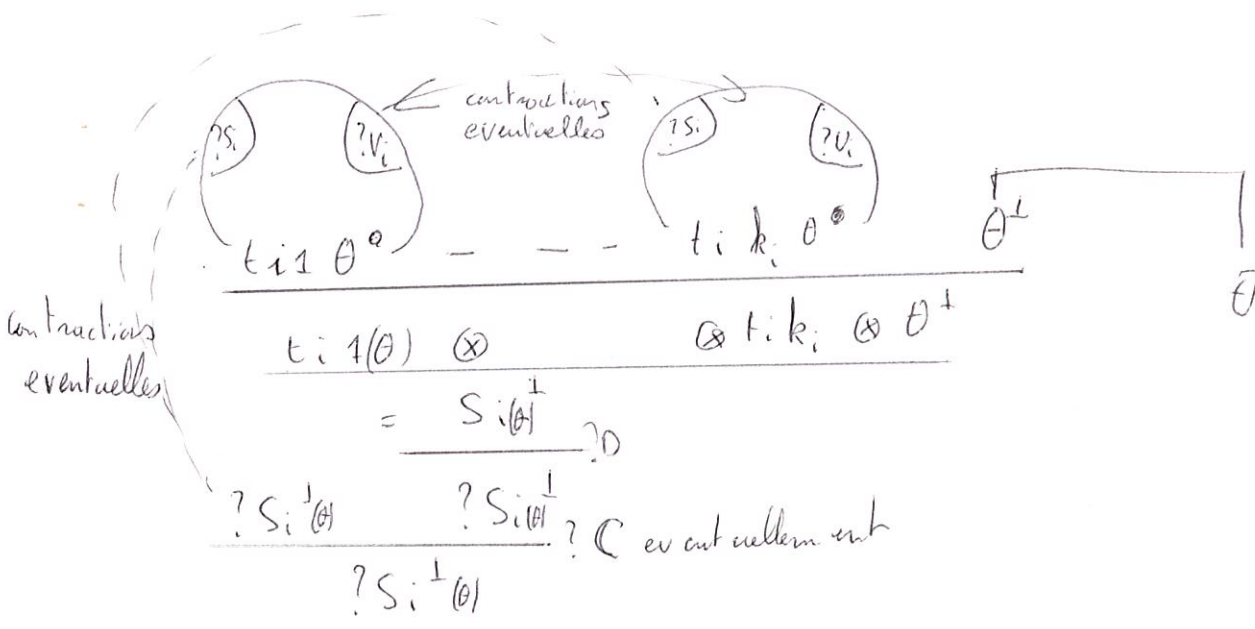 contractions
eventuelles
?Si ?Vi ?Si ?Vi
ti1 θ° - - - ti ki θ° θ^⊥
θ
contractions
eventuelles
ti1(θ) ⊗ ⊗ ti ki ⊗ θ^⊥
= Si(θ)^⊥
?D
?Si^⊥(θ) ?Si(θ)^⊥
?C eventuellement
?Si^⊥(θ)